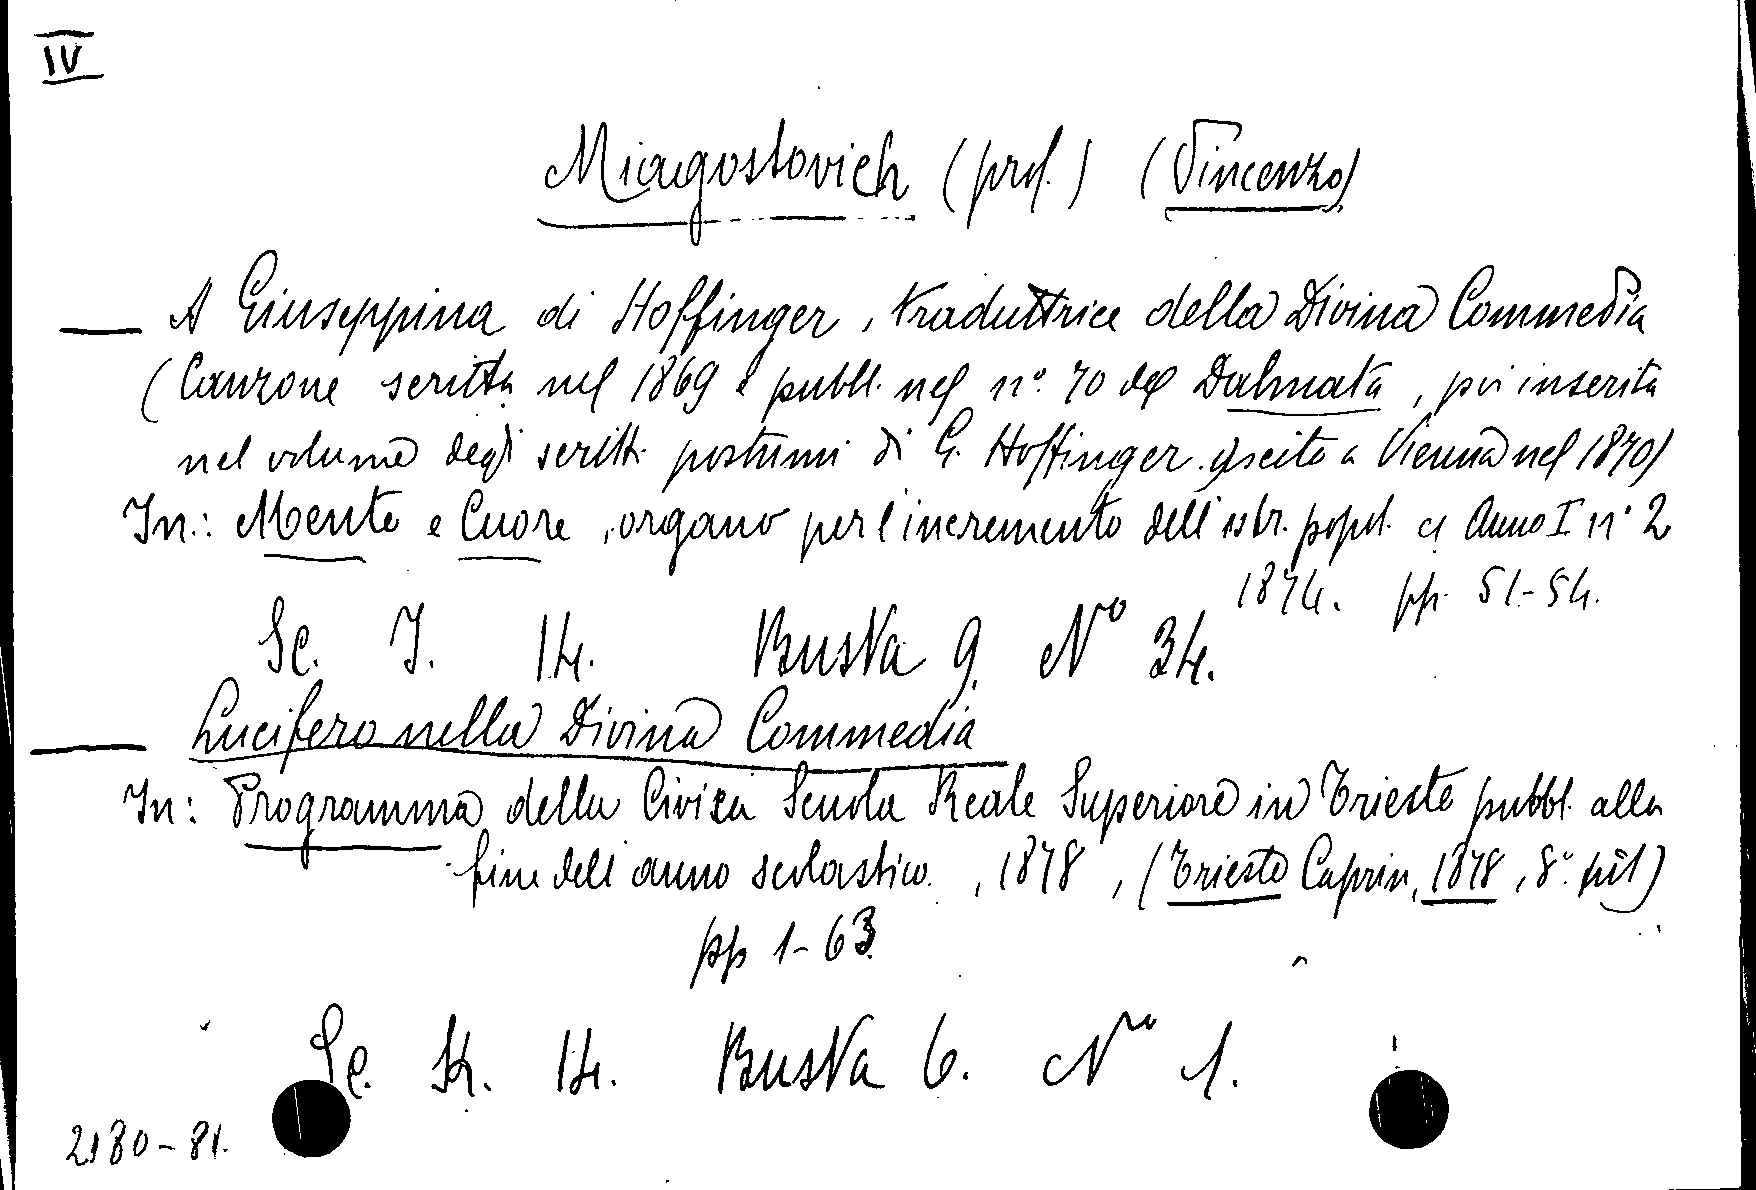 IV
Miagostovich (prof.) (Vincenzo)
— A Giuseppina di Hoffinger, traduttrice della Divina Commedia
(Canzone scritta nel 1869 e pubbl. nel n°. 70 del Dalmata, poi inserita
nel volume degli scritti postumi di G. Hoffinger uscito a Vienna nel 1870)
In: Mente e Cuore, organo per l'incremento dell'istr. popol. Anno I n° 2
1874. pp. 51-54.
Sc. J. 14. Busta 9. N° 34.
— Lucifero nella Divina Commedia
In: Programma della Civica Scuola Reale Superiore in Trieste pubbl. alla
fine dell'anno scolastico, 1878, (Trieste Caprin, 1878, 8°.
pp 1-63
Sc. K. 14. Busta 6. N° 1.
2180-81.